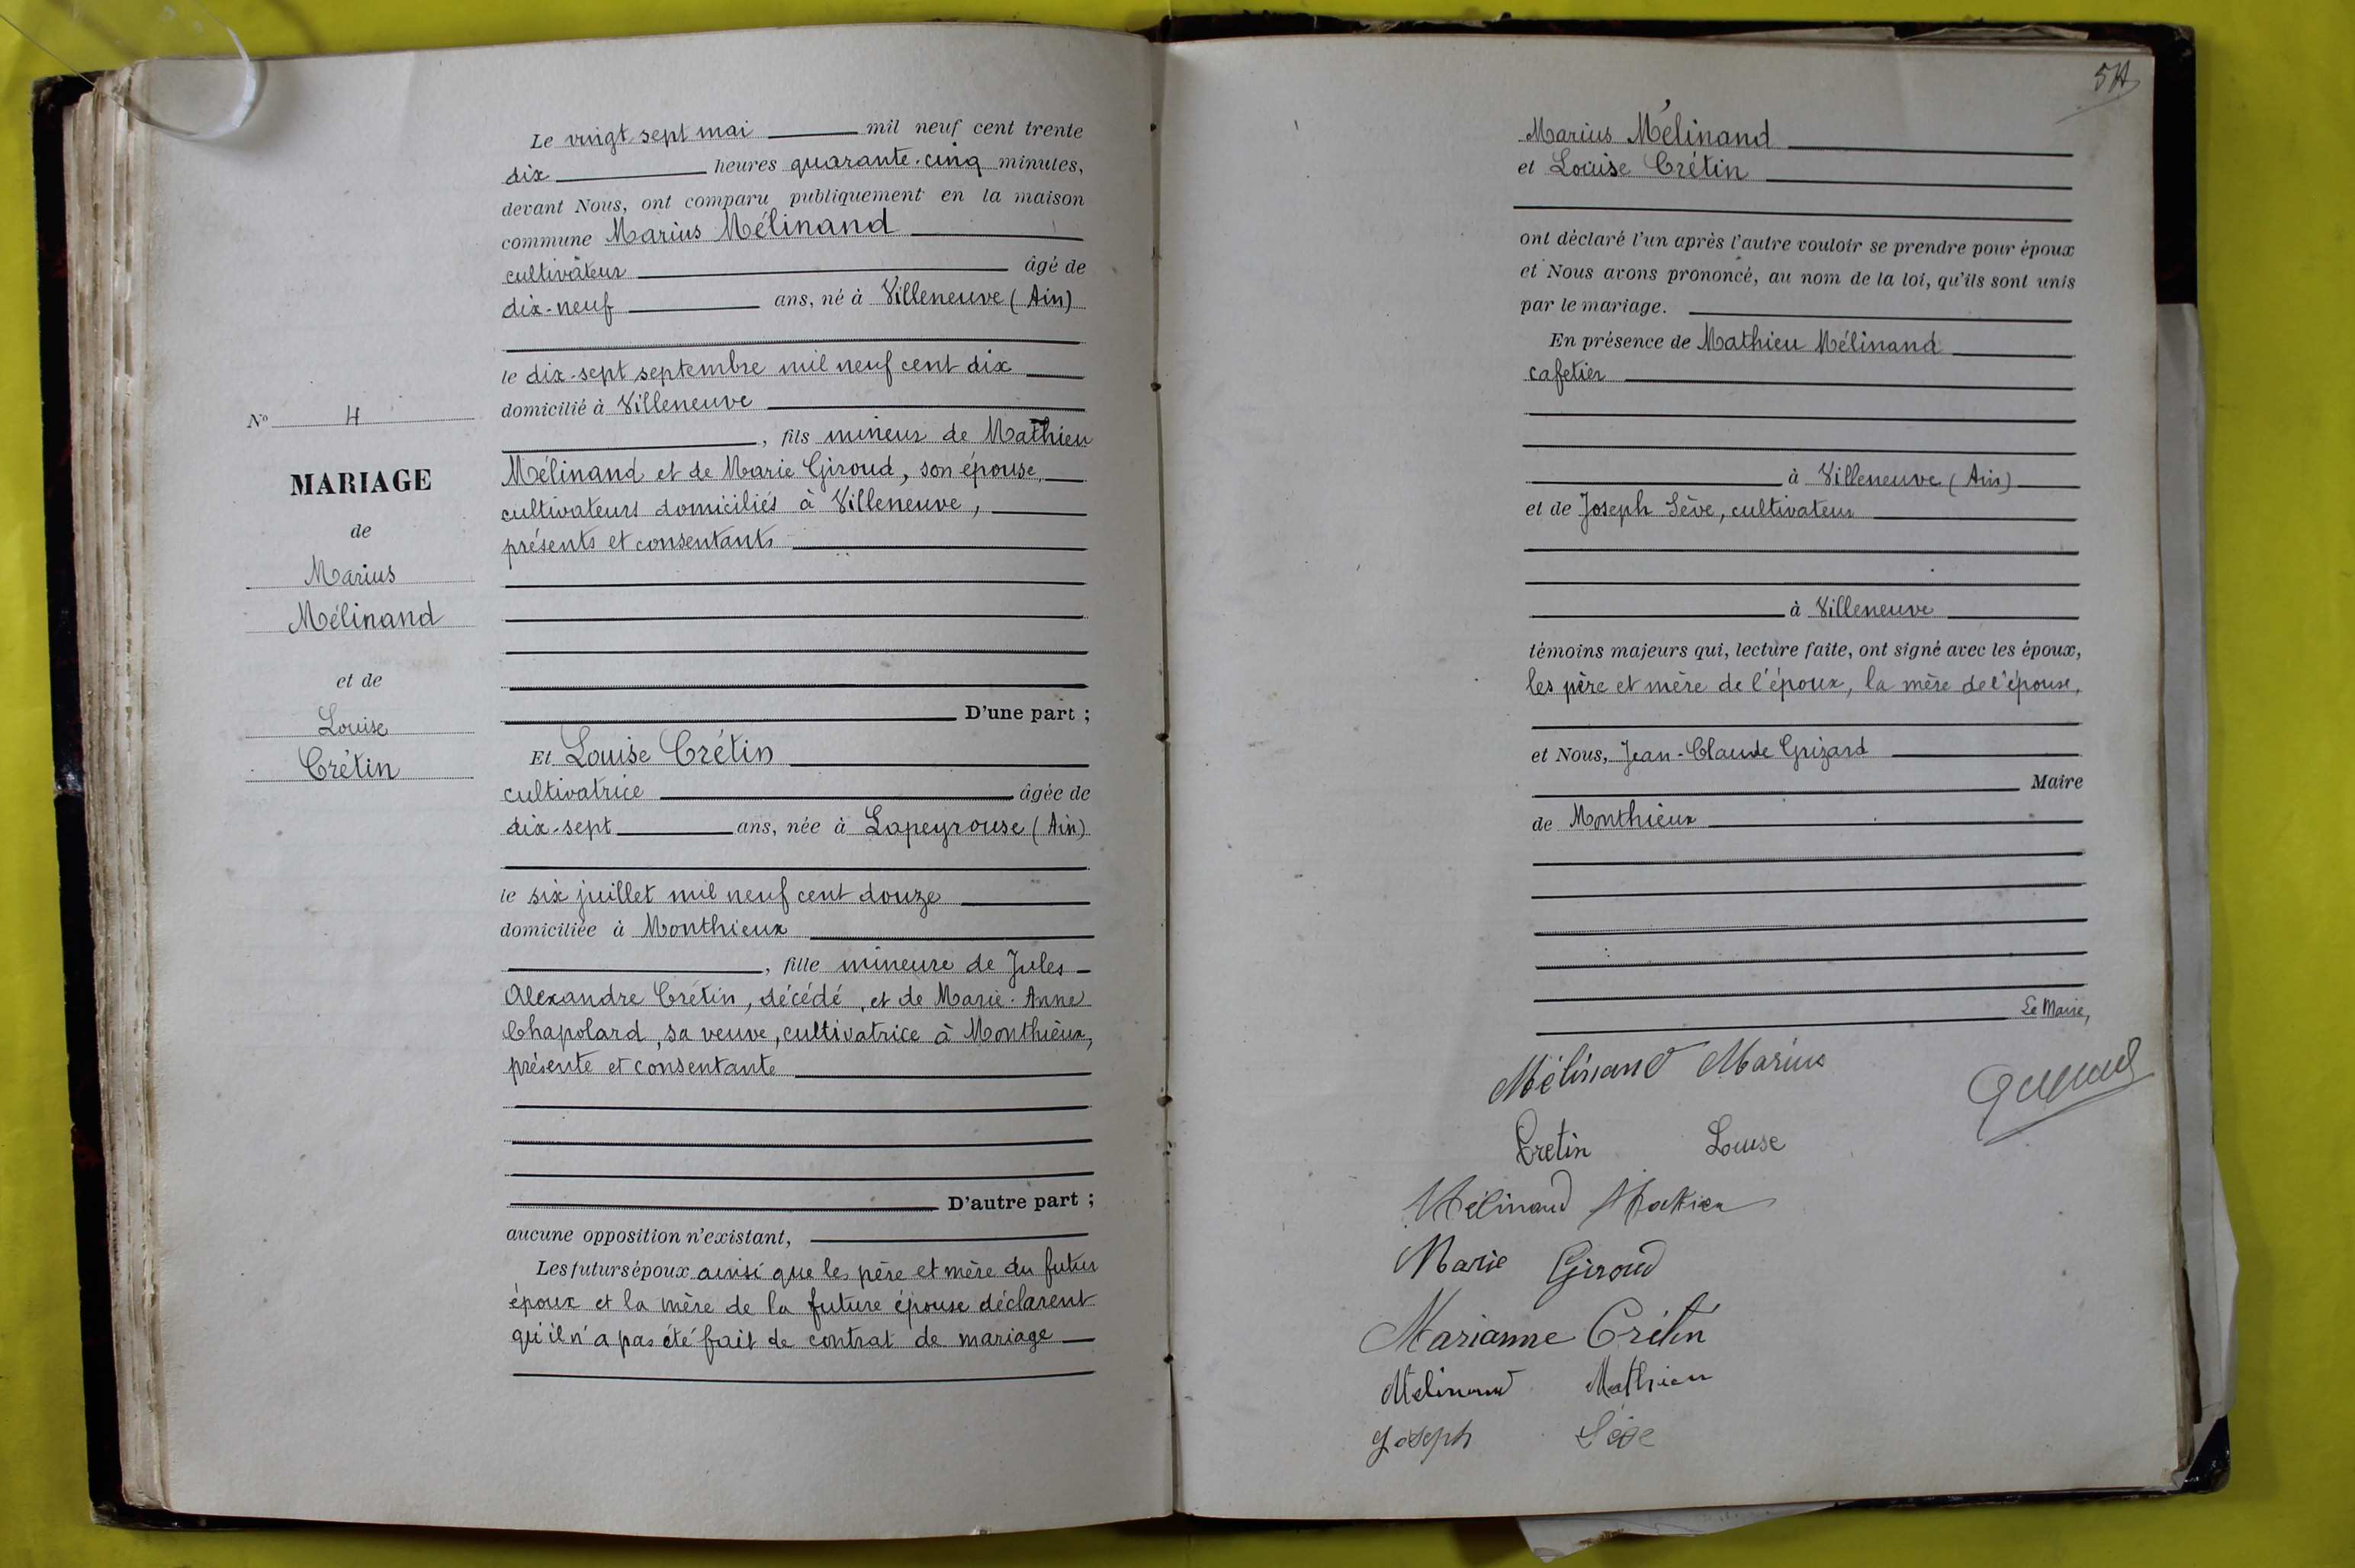 Le vingt sept mai mil neuf cent trente
dix heures quarante-cinq minutes,
devant Nous, ont comparu publiquement en la maison
commune Marius Mélinand
cultivateur âgé de
dix-neuf ans, né à Villeneuve (Ain)
le dix-sept septembre mil neuf cent dix
domicilié à Villeneuve
, fils mineur de Mathieu
Mélinand et de Marie Giroud, son épouse,
cultivateurs domiciliés à Villeneuve,
présents et consentants
No 4
MARIAGE
de
Marius
Mélinand
et de
Louise
Crétin
D'une part ;
Et Louise Crétin
cultivatrice âgée de
dix-sept ans, née à Lapeyrouse (Ain)
le six juillet mil neuf cent douze
domiciliée à Monthieux
, fille mineure de Jules
Alexandre Crétin, décédé, et de Marie-Anne
Chapolard, sa veuve, cultivatrice à Monthieux,
présente et consentante
D'autre part ;
aucune opposition n'existant,
Les futurs époux ainsi que les père et mère du futur
époux et la mère de la future épouse déclarent
qu'il n'a pas été fait de contrat de mariage
Marius Mélinand
et Louise Crétin
ont déclaré l'un après l'autre vouloir se prendre pour époux
et Nous avons prononcé, au nom de la loi, qu'ils sont unis
par le mariage.
En présence de Mathieu Mélinand
cafetier
à Villeneuve (Ain)
et de Joseph Sève, cultivateur
à Villeneuve
témoins majeurs qui, lecture faite, ont signé avec les époux,
les père et mère de l'époux, la mère de l'épouse,
et Nous, Jean-Claude Grizard
Maire
de Monthieux
Le Maire,
Mélinand Marius
Cretin Louise
Mélinand Mathieu
Marie Giroud
Marianne Crétin
Mélinand Mathieu
Joseph Sève